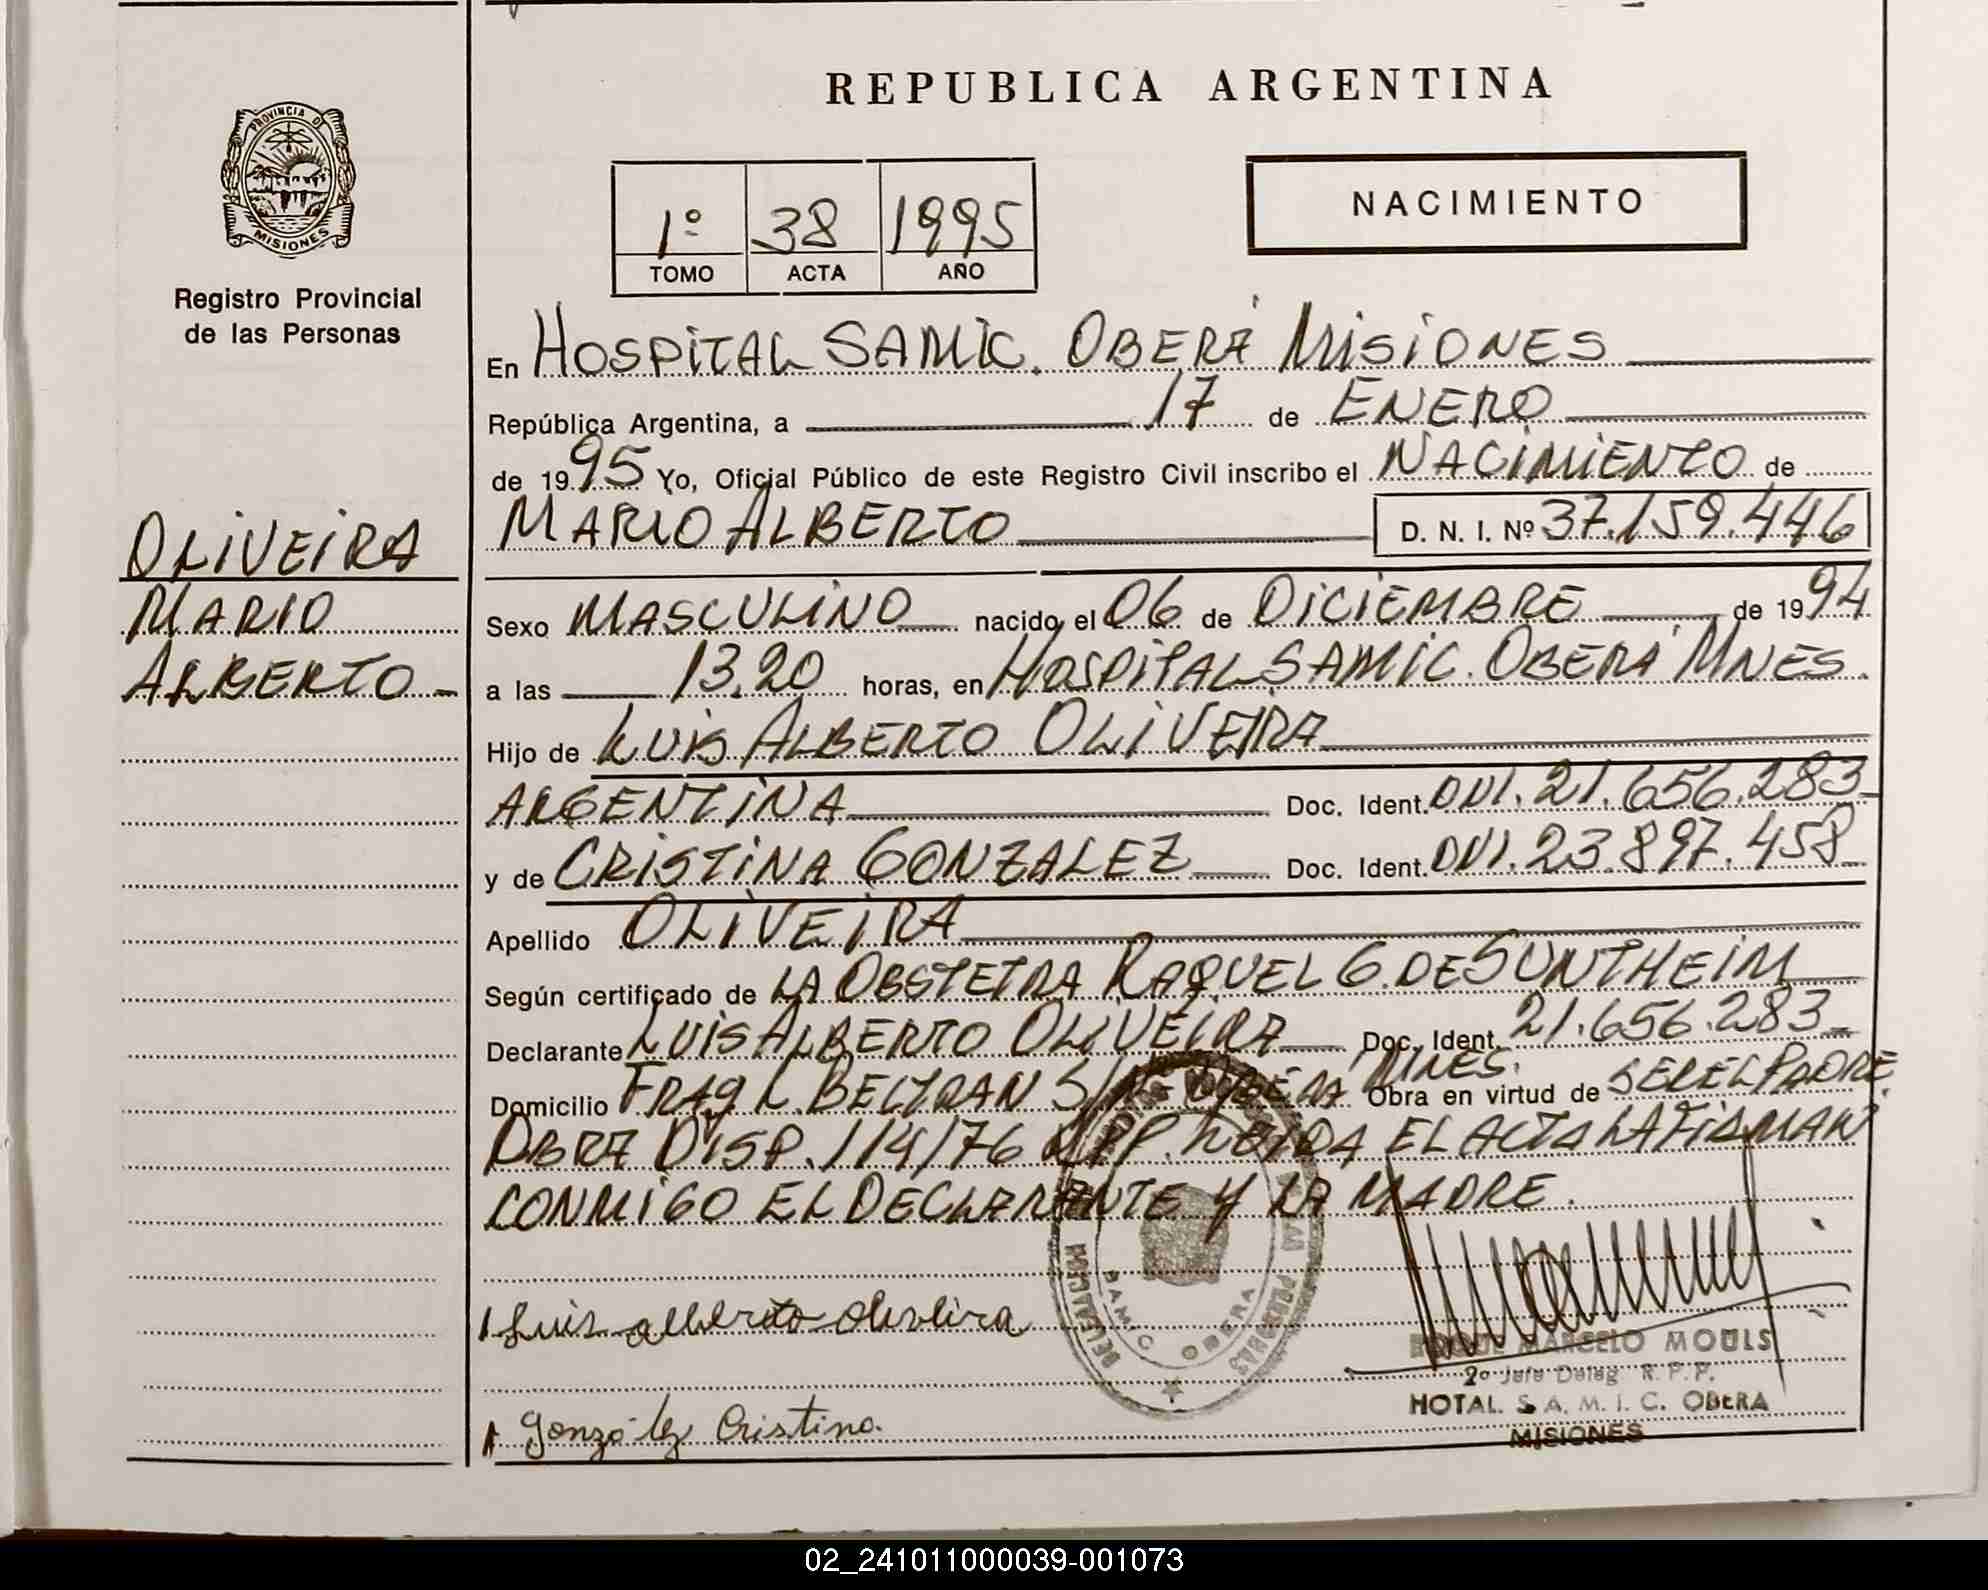 PROVINCIA DE
MISIONES
Registro Provincial
de las Personas
OLIVEIRA
MARIO
ALBERTO
REPUBLICA ARGENTINA
1º 38 1995
TOMO ACTA AÑO
NACIMIENTO
En HOSPITAL SAMIC. OBERÁ MISIONES
República Argentina, a 17 de ENERO
de 1995 Yo, Oficial Público de este Registro Civil inscribo el NACIMIENTO de
MARIO ALBERTO D. N. I. Nº 37.159.446
Sexo MASCULINO nacido el 06 de DICIEMBRE de 1994
a las 13.20 horas, en HOSPITAL SAMIC. OBERÁ MNES.
Hijo de LUIS ALBERTO OLIVEIRA
ARGENTINA Doc. Ident. DNI. 21.656.283
y de CRISTINA GONZALEZ Doc. Ident. DNI. 23.897.458
Apellido OLIVEIRA
Según certificado de LA OBSTETRA RAQUEL G. DE SUNTHEIM
Declarante LUIS ALBERTO OLIVEIRA Doc. Ident. 21.656.283
Domicilio FRAY L. BELTRAN S/Nº OBERA MNES. Obra en virtud de SER EL PADRE.
OBRA DISP. 114/76 RPP. LEIDA EL ACTA LA FIRMAN
CONMIGO EL DECLARANTE Y LA MADRE.
Luis alberto oliveira
González Cristina.
DELEGACION
SAMIC OBERA
PERSONAS
ROQUE MARCELO MOULS
2º Jefe Deleg. R. P. P.
HOTAL. S. A. M. I. C. OBERA
MISIONES
02_241011000039-001073